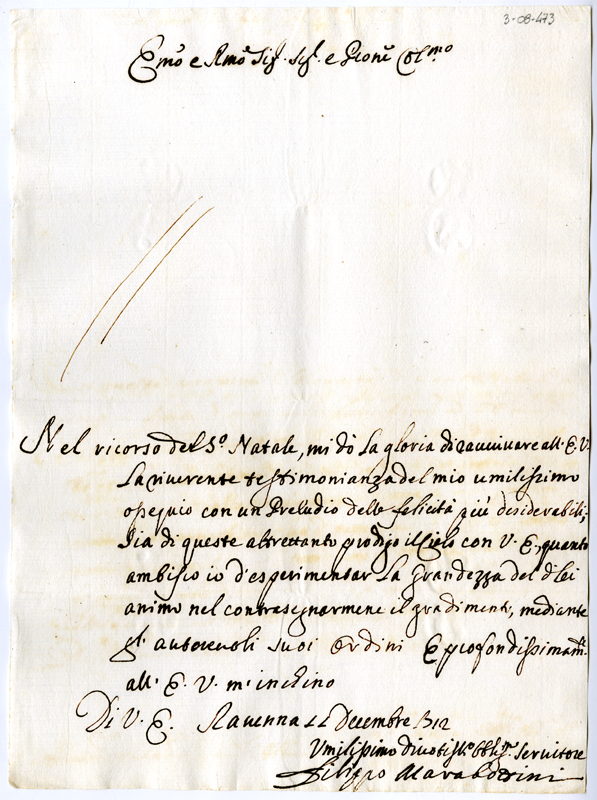 3-08-473
Emõ e Rmõ Sig.r Sig.r e Prone Col.mo
Nel ricorso del S.o Natale, mi dò la gloria di ravvivare all. E. V.
la riverente testimonianza del mio umilissimo
ossequio con un Preludio delle felicità più desiderabili;
Sia di queste altrettanto prodigo il Cielo con V. E., quanto
ambisco io d'esperimentar la Grandezza del di lei
animo nel contrasegnarmene il gradimento, mediante
gl' autorevoli suoi ordini E profondissimam.te
all. E. V. m'inchino
Di V. E. Ravenna Decembre
Umilissimo Divotiss.o Obblig.mo Servitore
Filippo